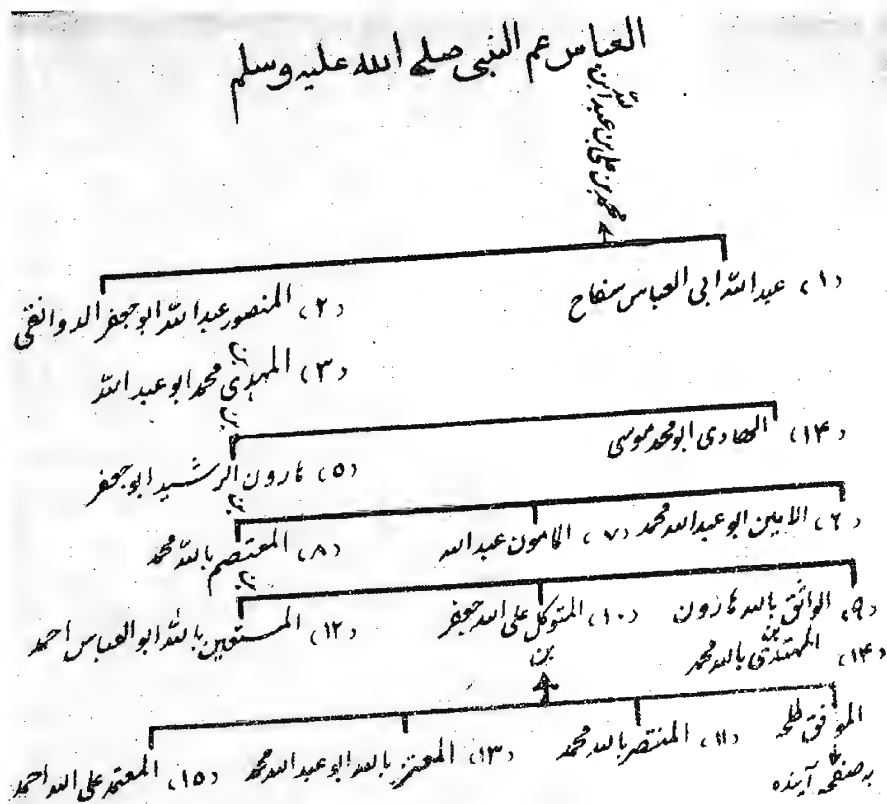 العباس عم النبی صلے الله علیه وسلم
محمد بن علی بن عبد الله ابن
(۱) عبد الله ابی العباس سفاح
(۲) المنصور عبد الله ابو جعفر الدوانقی
بن
(۳) المهدی محمد ابو عبد الله
بن
(۱۴) الهادی ابو محمد موسی
(۵) هارون الرشید ابو جعفر
بن
(۶) الامین ابو عبد الله محمد (۷) المامون عبد الله
(۸) المعتصم بالله محمد
بن
(۹) الواثق بالله هارون
(۱۰) المتوکل علی الله جعفر
(۱۲) المستعین بالله ابو العباس احمد
بن
(۱۴) المهتدی بالله محمد
بن
الموفق طلحه
(۱۱) المنتصر بالله محمد
(۱۳) المعتز بالله ابو عبد الله محمد
(۱۵) المعتمد علی الله احمد
به صفحه آینده